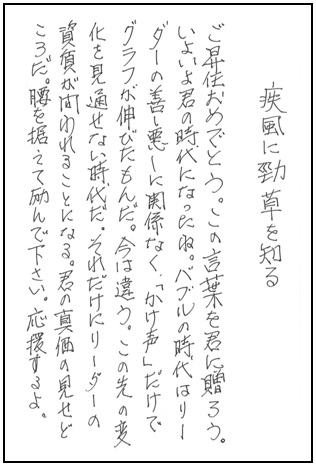 疾風に勁草を知る
ご昇任おめでとう。この言葉を君に贈ろう。
いよいよ君の時代になったね。バブルの時代はリー
ダーの善し悪しに関係なく、「かけ声」だけで
グラフが伸びたもんだ。今は違う。この先の変
化を見通せない時代だ。それだけにリーダーの
資質が問われることになる。君の真価の見せど
ころだ。腰を据えて励んで下さい。応援するよ。